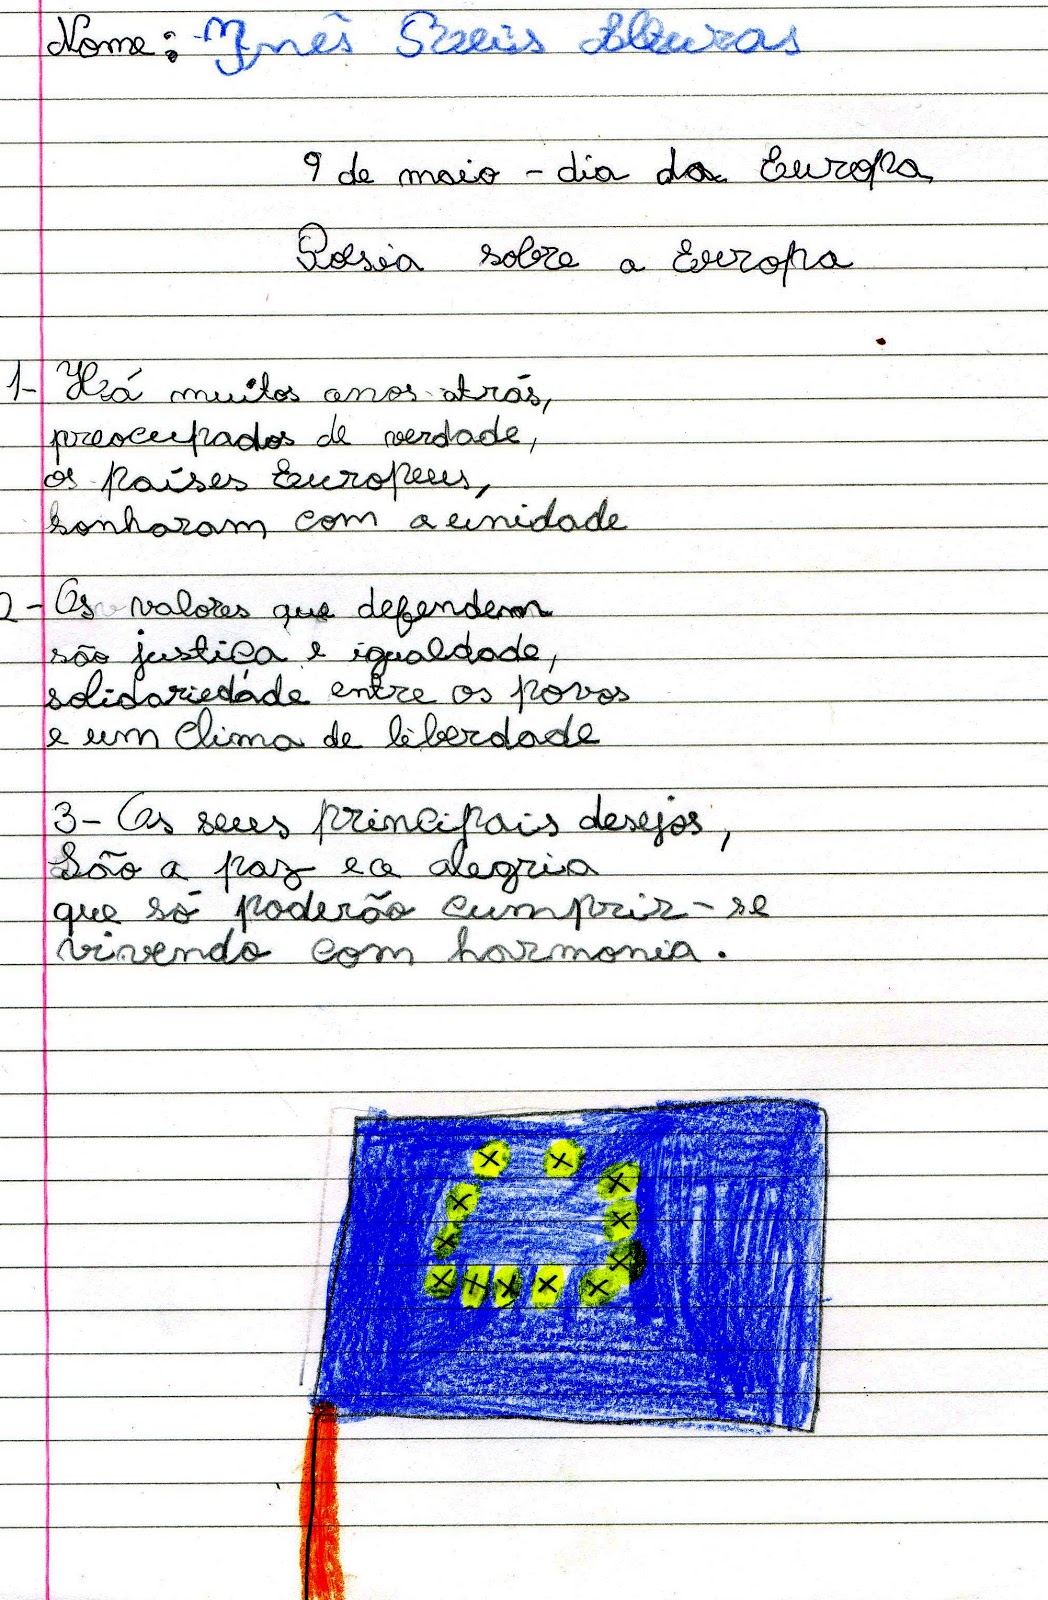 Nome: Inês
9 de maio - dia da Europa
Poesia sobre a Europa
1- Há muitos anos atrás,
preocupados de verdade,
os países Europeus,
sonharam com a unidade
2- Os valores que defendem
são justiça e igualdade,
solidariedade entre os povos
e um clima de liberdade
3- Os seus principais desejos,
São a paz e a alegria
que só poderão cumprir-se
vivendo com harmonia.